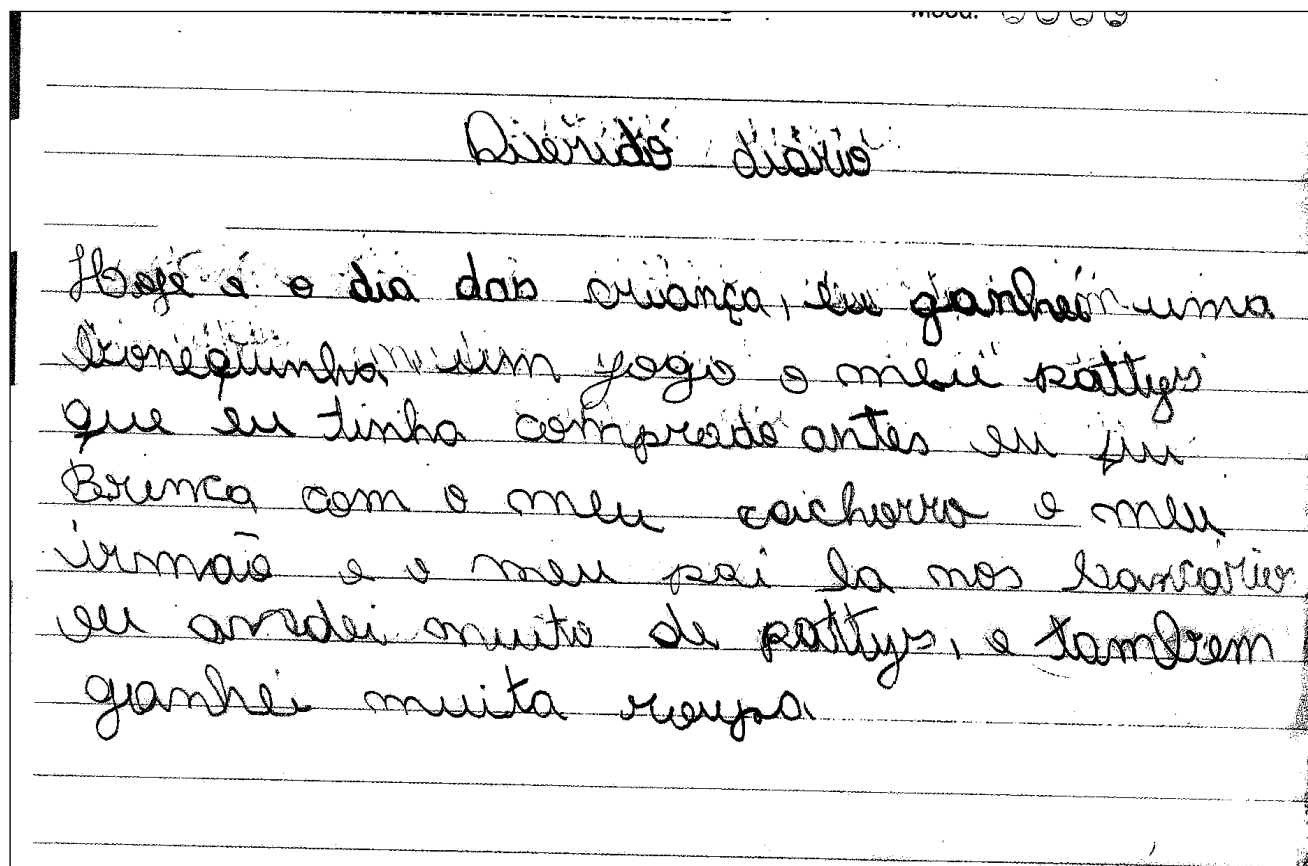 Mood:
Querido diário
Hoje é o dia das criança, eu ganhei uma
bonequinha um jogo e meu pattys
que eu tinha comprado antes eu fui
Brinca com o meu cachorro o meu
irmão e o meu pai la nos bancário
eu andei muito de pattys, e tambem
ganhei muita roupa